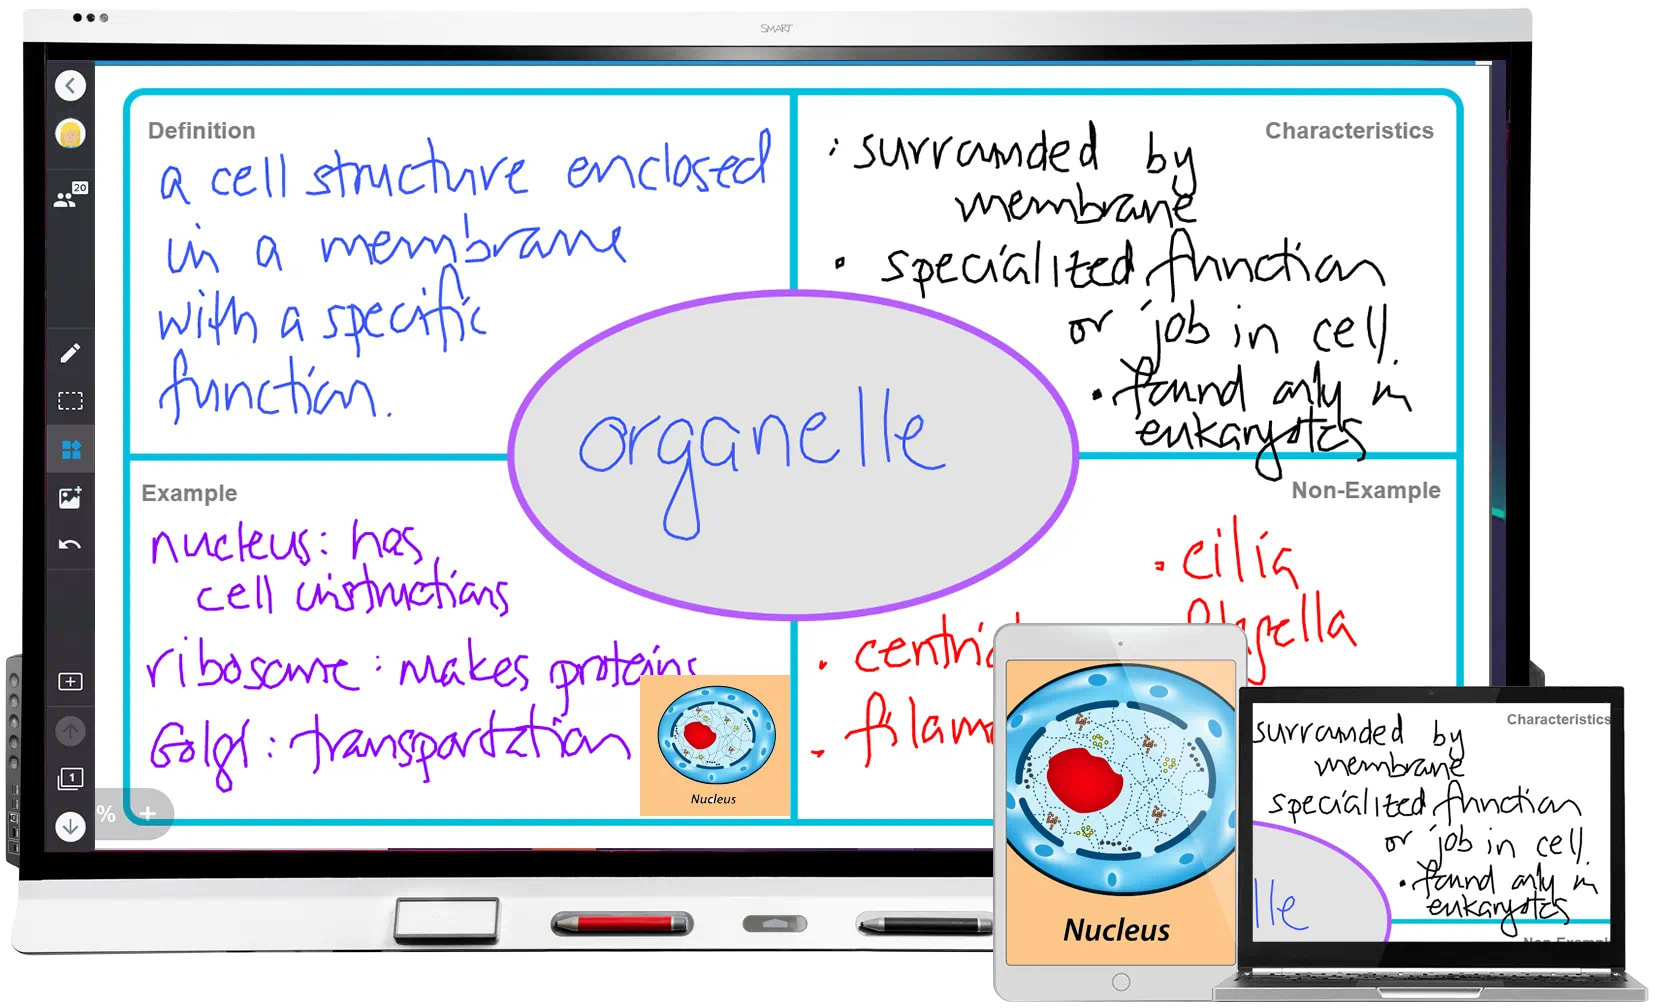 SMART
20
Definition
a cell structure enclosed
in a membrane
with a specific
function.
Characteristics
• surrounded by
membrane
• specialized function
or job in cell.
• found only in
eukaryotes
organelle
Example
nucleus: has
cell instructions
ribosome: makes proteins
Golgi: transportation
Nucleus
Non-Example
• cilia
• 
• filam
1
%
Nucleus
Characteristics
surrounded by
membrane
specialized function
or job in cell.
• found only in
eukaryotes
lle